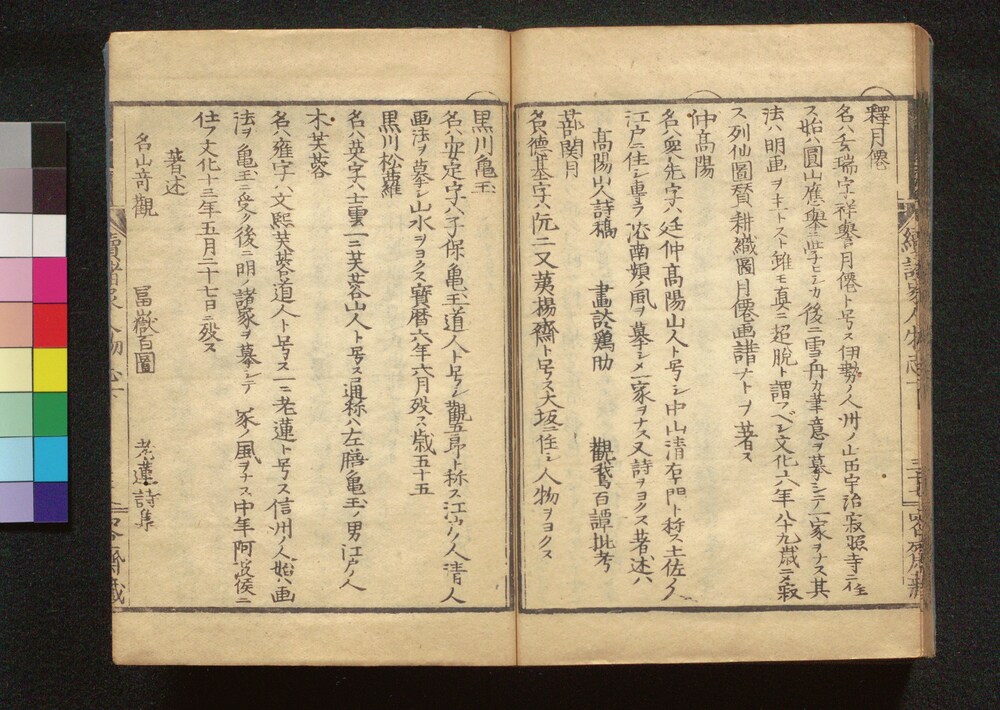 釋月僊
名ハ玄瑞字祥譽月僊ト号ス伊勢ノ人州ノ山田宇治寂照寺ニ住
ス始ハ圓山應舉ニ学ヒシカ後ニ雪舟カ筆意ヲ摹シテ一家ヲナス其
法ハ明画ヲ主トスト雖モ真ニ超脱ト謂フベシ文化六年八十九歳ニメ寂
ス列仙圖賛耕織圖月僊画譜ナトノ著ス
仲高陽
名ハ字先字ハ廷仲高陽山人ト号シ中山清右エ門ト称ス土佐ノ人
江戸ニ住シ專ラ沈南蘋ノ風ヲ摹シメ一家ヲナス又詩ヲヨクス著述ハ
高陽山人詩稿 畫談鶏肋 觀鵞百譚批考
蔀関月
名ハ德基字ハ阮二又荑楊齋ト号ス大坂ニ住シ人物ヲヨクス
黒川亀玉
名ハ安定字ハ子保亀玉道人ト号シ觀五郎ト称ス江戸ノ人清人
画法ヲ摹シ山水ヲヨクス寶暦六年六月殁ス歳五十五
黒川松蘿
名ハ英字ハ士雲一ニ芙蓉山人ト号ス通称ハ左膳亀玉ノ男江戸ノ人
木芙蓉
名ハ雍字ハ文熙芙蓉道人ト号ス一ニ老蓮ト号ス信州ノ人始ハ画
法ヲ亀玉ニ受ク後ニ明ノ諸家ヲ摹シテ一家ノ風ヲナス中年阿波侯ニ
仕フ文化十三年五月二十七日ニ殁ス
著述
名山奇觀 冨嶽百圖 老蓮詩集